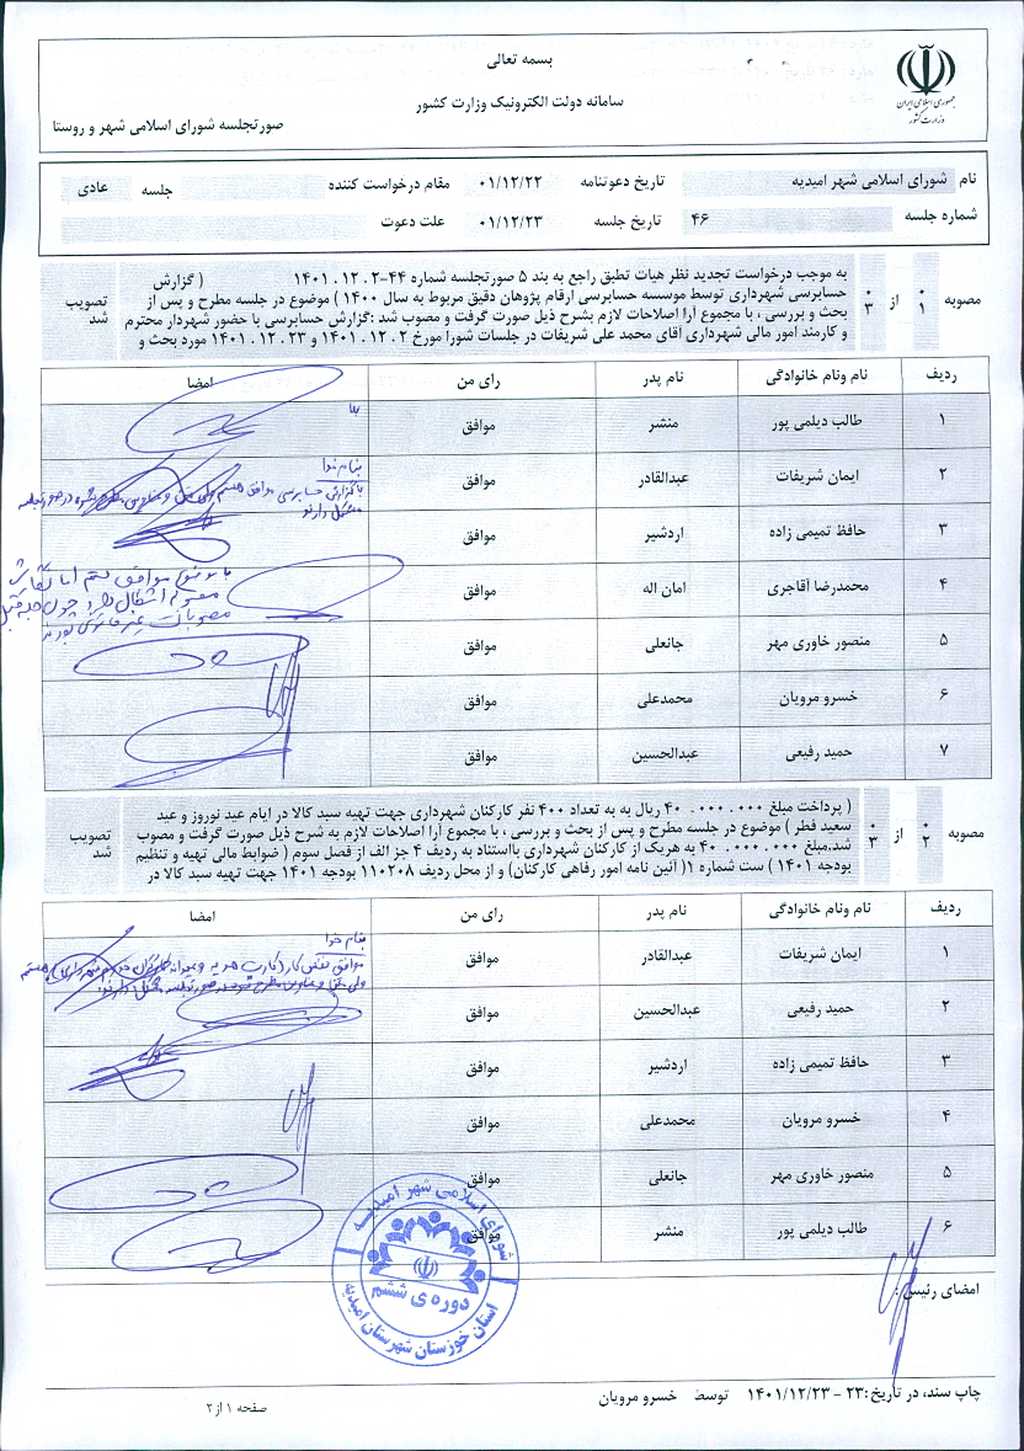 بسمه تعالی
سامانه دولت الکترونیک وزارت کشور
صورتجلسه شورای اسلامی شهر و روستا
جمهوری اسلامی ایران
وزارت کشور
نام شورای اسلامی شهر امیدیه تاریخ دعوتنامه ۰۱/۱۲/۲۲ مقام درخواست کننده جلسه عادی
شماره جلسه ۴۶ تاریخ جلسه ۰۱/۱۲/۲۳ علت دعوت
مصوبه ۰۱ از ۰۳
به موجب درخواست تجدید نظر هیات تطبق راجع به بند ۵ صورتجلسه شماره ۴۴-۱۴۰۱ . ۱۲ . ۰۲ ( گزارش
حسابرسی شهرداری توسط موسسه حسابرسی ارقام پژوهان دقیق مربوط به سال ۱۴۰۰ ) موضوع در جلسه مطرح و پس از
بحث و بررسی ، با مجموع آرا اصلاحات لازم بشرح ذیل صورت گرفت و مصوب شد :گزارش حسابرسی با حضور شهردار محترم
و کارمند امور مالی شهرداری آقای محمد علی شریفات در جلسات شورا مورخ ۲ . ۱۲ . ۱۴۰۱ و ۲۳ . ۱۲ . ۱۴۰۱ مورد بحث و
تصویب شد
ردیف نام ونام خانوادگی نام پدر رای من امضا
۱ طالب دیلمی پور منشر موافق
۲ ایمان شریفات عبدالقادر موافق
بنام خدا
با گزارش حسابرسی موافق هستم ولی متن و عناوین مطرح شده در صورتجلسه
مشکل دارند
۳ حافظ تمیمی زاده اردشیر موافق
۴ محمدرضا آقاجری امان اله موافق
با موضوع موافق هستم اما نگارش
مصوبه اشکال دارد چون جلسه قبل
مصوبات غیر قانونی بودند
۵ منصور خاوری مهر جانعلی موافق
۶ خسرو مرویان محمدعلی موافق
۷ حمید رفیعی عبدالحسین موافق
مصوبه ۰۲ از ۰۳
( پرداخت مبلغ ۴۰۰۰۰ . ۰۰۰ . ریال به به تعداد ۴۰۰ نفر کارکنان شهرداری جهت تهیه سبد کالا در ایام عید نوروز و عید
سعید فطر ) موضوع در جلسه مطرح و پس از بحث و بررسی ، با مجموع آرا اصلاحات لازم به شرح ذیل صورت گرفت و مصوب
شد.مبلغ ۴۰۰۰۰ . ۰۰۰ . به هریک از کارکنان شهرداری بااستناد به ردیف ۴ جز الف از فصل سوم ( ضوابط مالی تهیه و تنظیم
بودجه ۱۴۰۱ ) ست شماره ۱( آئین نامه امور رفاهی کارکنان) و از محل ردیف ۱۱۰۲۰۸ بودجه ۱۴۰۱ جهت تهیه سبد کالا در
تصویب شد
ردیف نام ونام خانوادگی نام پدر رای من امضا
۱ ایمان شریفات عبدالقادر موافق
بنام خدا
۲ حمید رفیعی عبدالحسین موافق
۳ حافظ تمیمی زاده اردشیر موافق
۴ خسرو مرویان محمدعلی موافق
۵ منصور خاوری مهر جانعلی موافق
۶ طالب دیلمی پور منشر موافق
شورای اسلامی شهر امیدیه
دوره ی ششم
استان خوزستان شهرستان امیدیه
امضای رئیس :
چاپ سند، در تاریخ:۲۳ - ۱۴۰۱/۱۲/۲۳ توسط خسرو مرویان
صفحه ۱ از۲